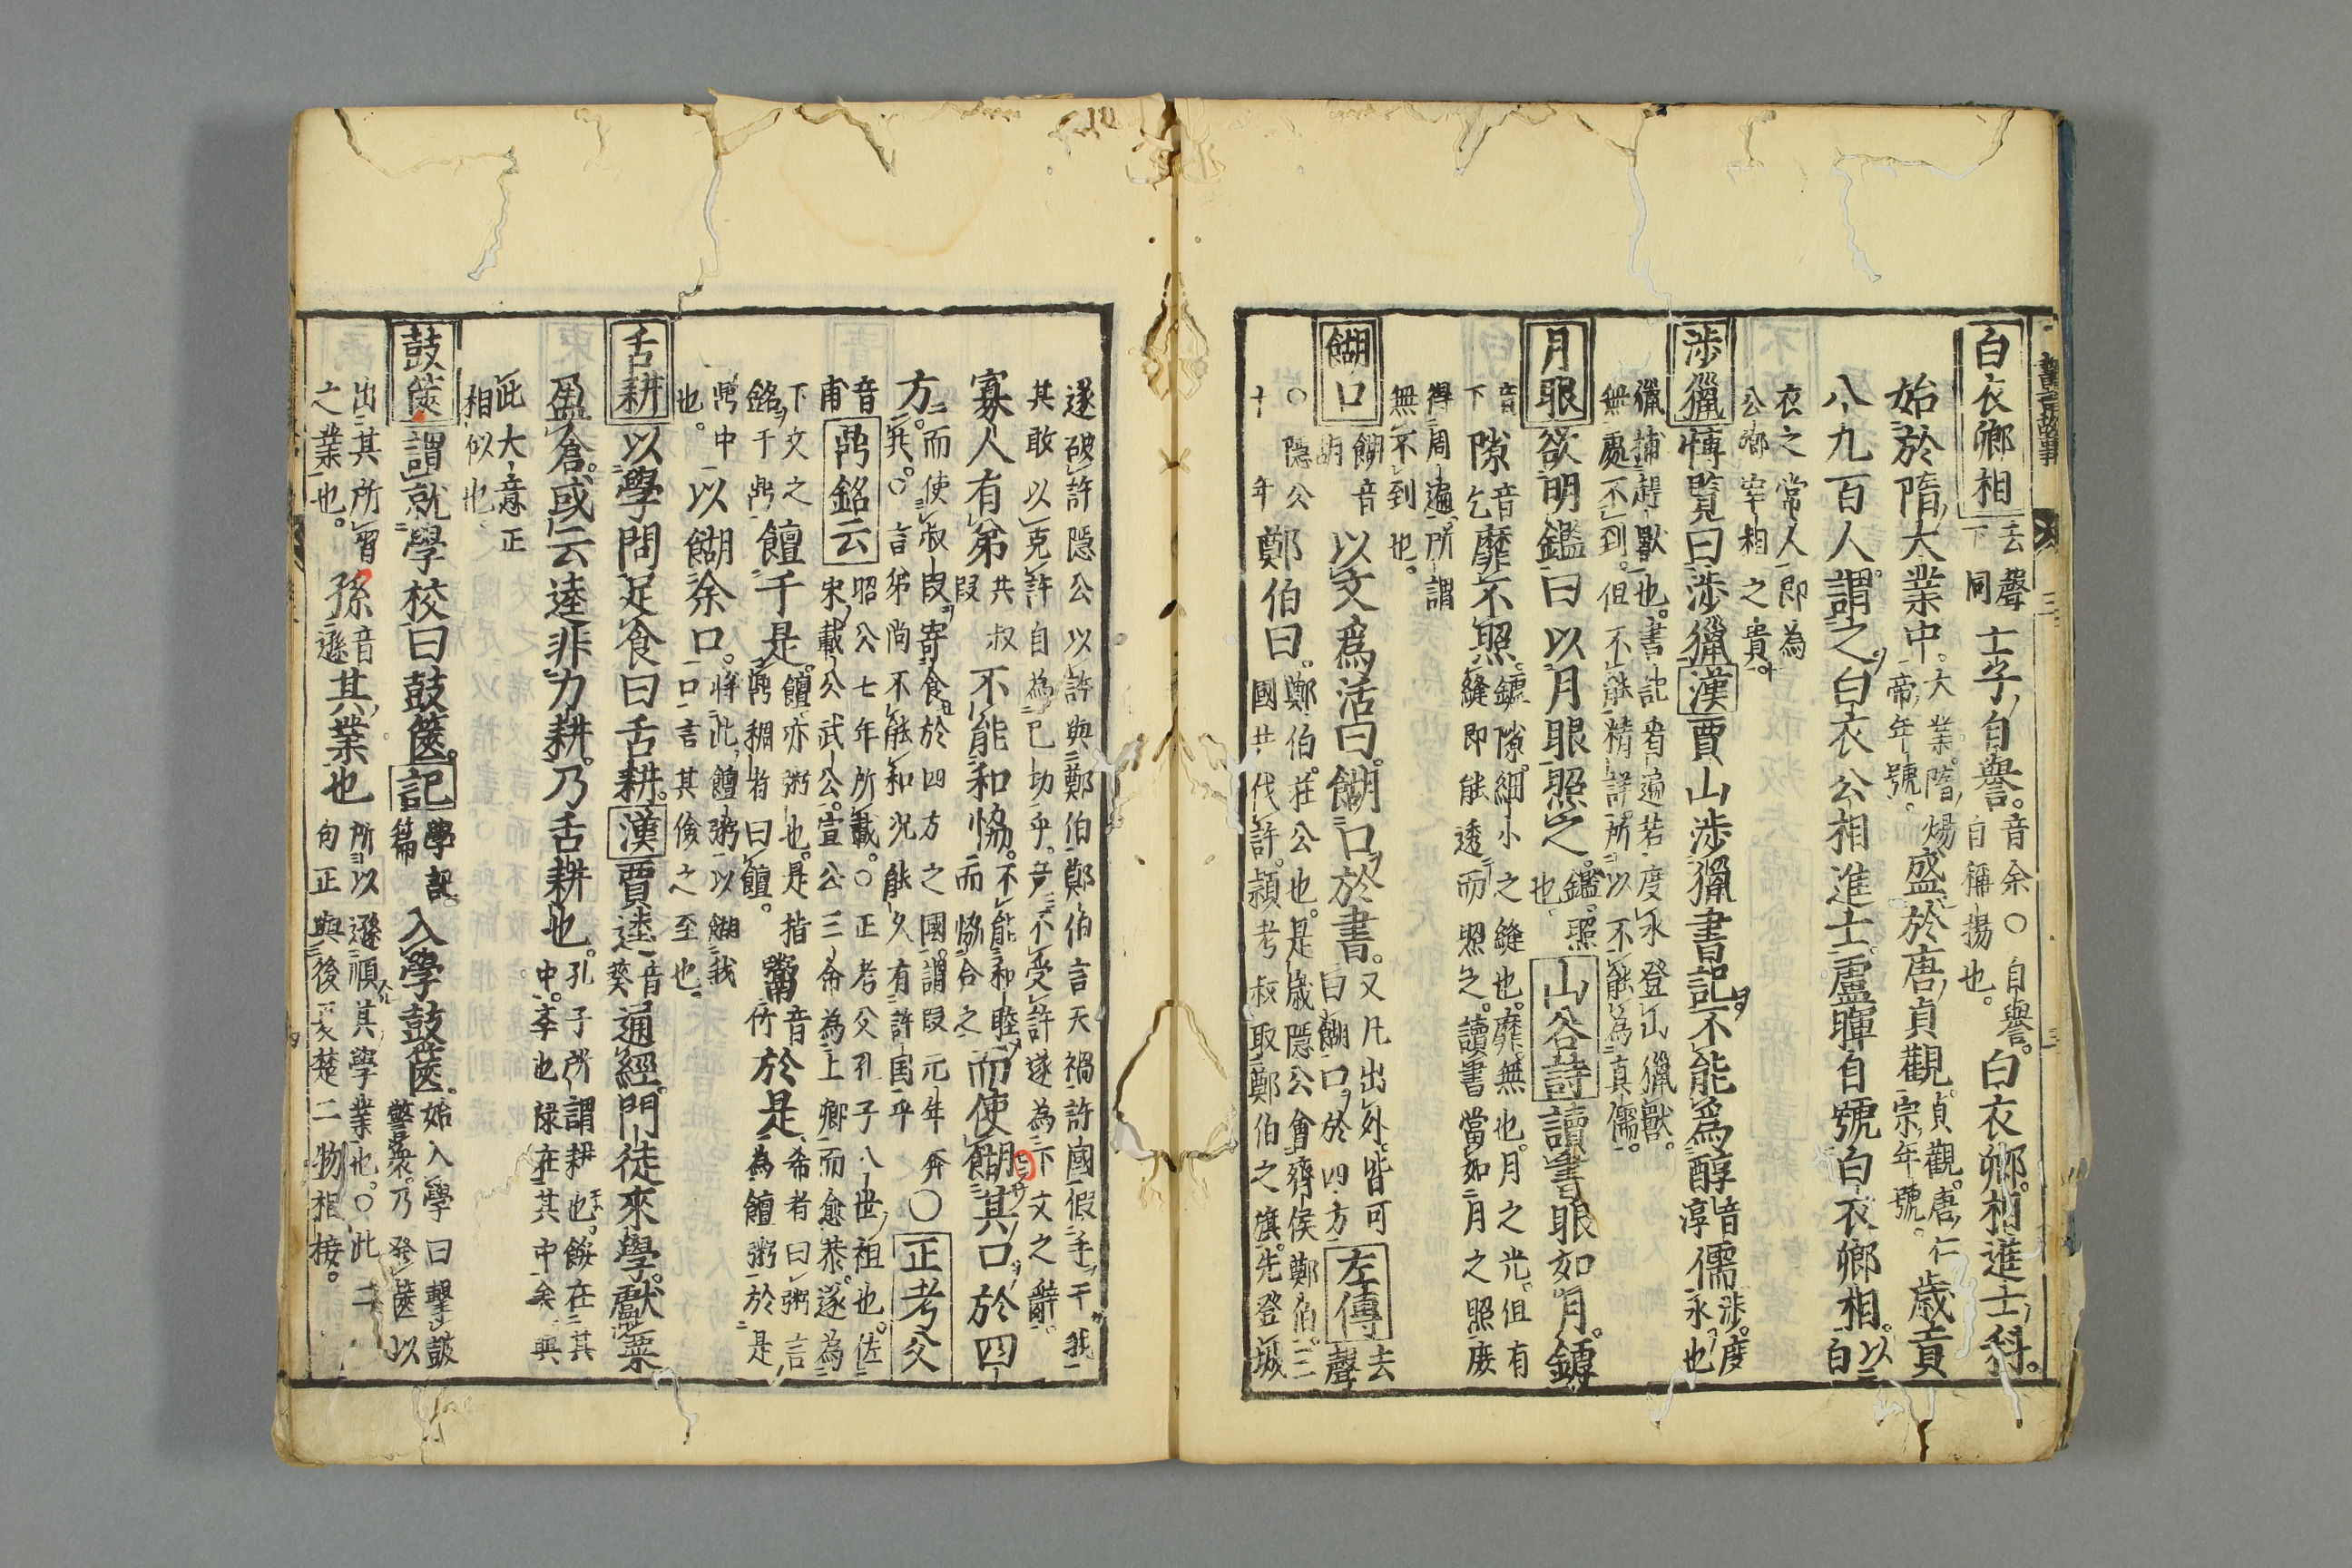 書言故事
白衣卿相 去聲下同 士子自譽。音余○自譽。自稱揚也。 白衣卿相進士科。
始於隋大業中。大業。隋煬帝年號。 盛於唐貞觀。貞觀。唐仁宗年號。 歲貢
八九百人。謂之白衣公相進士。盧暉自號白衣卿相。以白
衣之常人即為公卿宰相之貴。
涉獵 博覽曰涉獵漢賈山涉獵書記不能爲醇音淳儒涉。度水也
獵捕趕獸也。書記看遍若度水登山獵獸。無處不到。但不能精詳。所以不能為真儒。
月眼 欲明鑑曰以月眼照之。鑑。照也。 山谷詩 讀書眼如月。罅
音下 隙音乞 靡不照。罅隙。細小之縫也。靡。無也。月之光。但有縫即能透而照之。讀書當如月之照庻
得周遍。所謂無不到也。
餬口 餬音胡 以文爲活曰。餬口於書。又凡出外。皆可曰餬口於四方 左傳 去聲
○隱公十一年 鄭伯曰。鄭伯。莊公也。是歲隱公會齊侯鄭伯。三國共伐許。頴考叔取鄭伯之旗。先登城
遂破許隱公以許與鄭伯鄭伯言天禍許國假手于我
其敢以克許自為己功乎。意不受許遂為下文之辭。
寡人有弟 共叔段 不能和恊。不能和睦而恊合之 而使餬其口於四
方。而使叔段寄食於四方之國。謂段元年奔共。○言弟尚不能和况能久有許国乎 ○正考父
音甫 鼎銘云 昭公七年所載。○正考父孔子八世祖也。佐宋戴公武公宣公三命為上卿而愈恭。遂為
下文之銘于鼎 饘于是。饘亦粥也。是指鼎稠者曰饘。 鬻音竹 於是 希者曰粥言為饘粥於是
鼎中 以餬余口。將此饘粥以餬我口言其儉之至也
也。
舌耕 以學問足食曰舌耕。漢賈逵音葵通經。門徒來學。獻粟
盈倉。或云逵非力耕。乃舌耕也。孔子所謂耕也。餒在其中。學也祿在其中矣與
此大意正相似也
鼓篋 謂就學校曰鼓篋。記 學記篇 入學鼓篋。始入學曰擊鼓警衆。乃發篋以
出其所習之業也。 孫音遜 其業也 所以遜順其學業也。○此二句正與後夏楚二物相接。